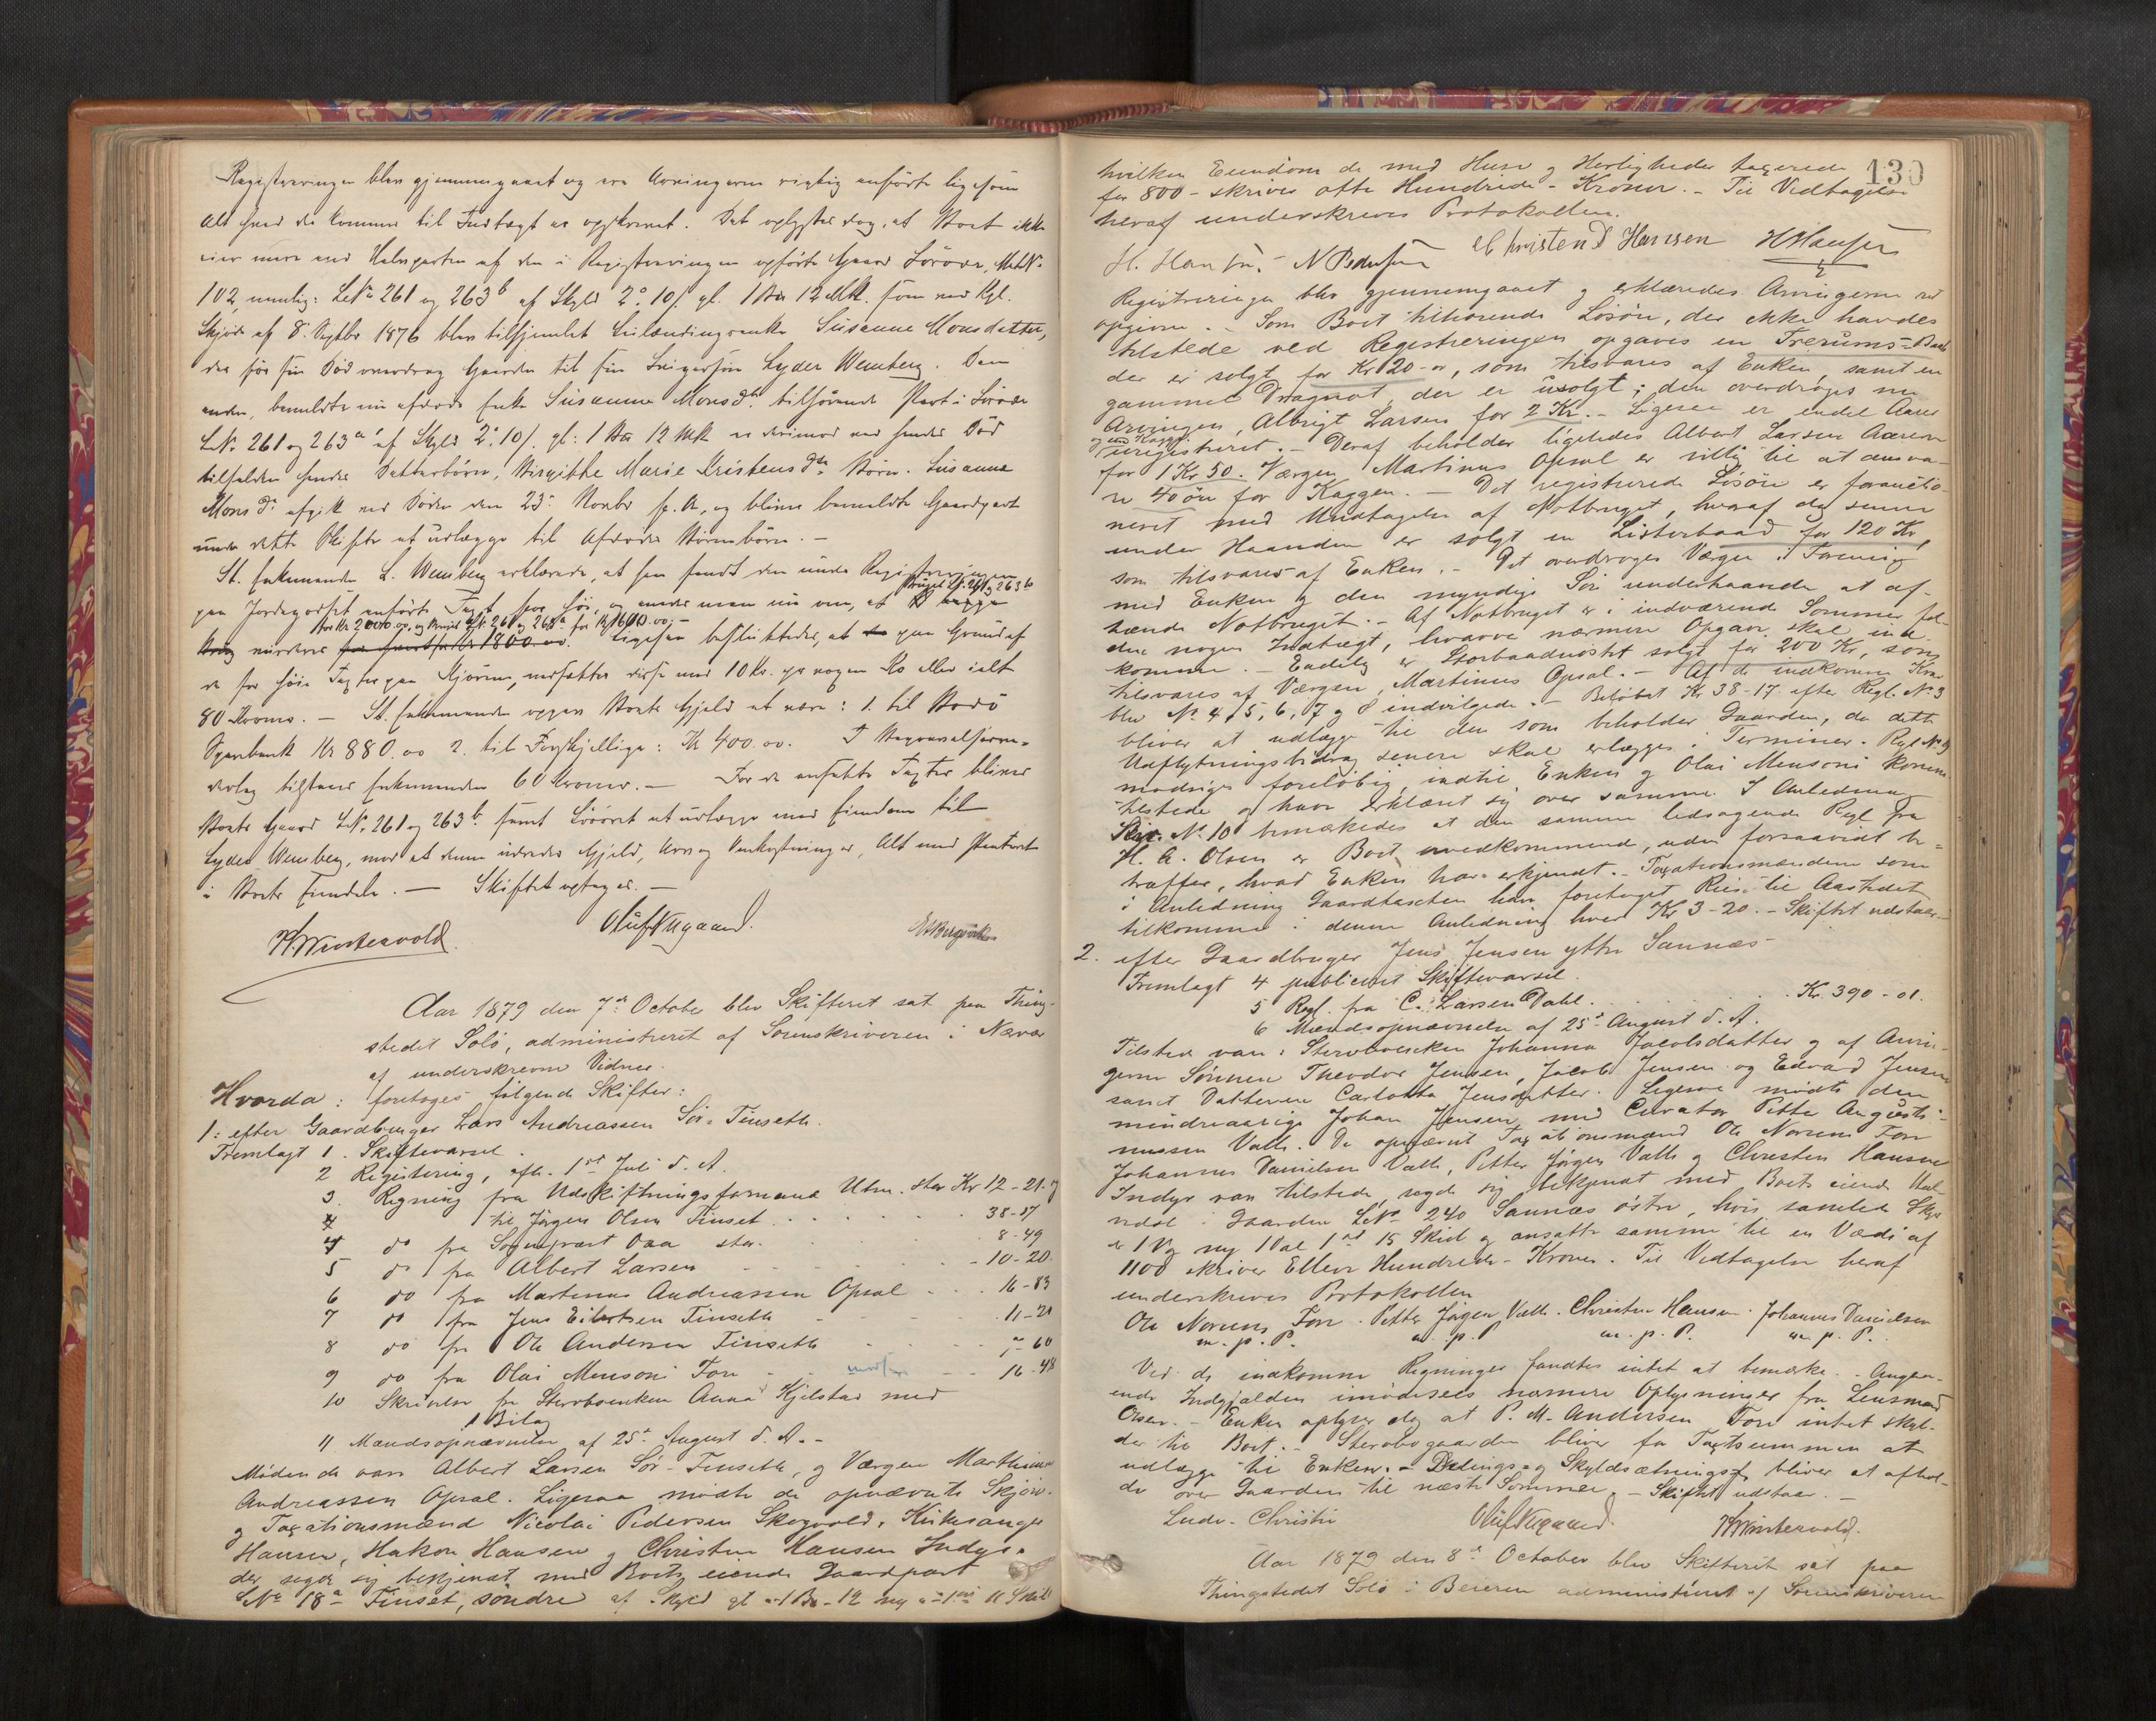 Registreringen blev gjennemgaaet og era Arvingerne rigtig anførte ligesom
Alt hvad der kommer til Indtægt er opskrevet. Det oplystes dog, at Boet ikke
eier mere end Halvparten af den i Registreringen opførte Gaard Sørøen, Mat. N.
102, nemlig: L.No 261 og 263 b af Skyld 2. 10 / gl. 1 12 Mk. som ved Kgl.
Skjøde af 8. Septbr 1876 blev tilskjenket Enke Susanne Monsdatter,
der før sin Død overdrog Gaarden til sin Svigersøn Lyder Wemberg. Den
anden, bemeldte nu afdøde Enke Susanne Monsdtr. tilhørende Part i
L.N. 261 og 263 a af Skyld 2. 10 /. gl: 1 12 Mk er derimod ved hendes Død
tilfalden hendes Datterbørn, Birgitthe Marie Kristensdtr Børn. Susanne
Monsdtr afgik ved Døden den 23. Novbr f. A, og bliver bemeldte Gaardpart
under dette Skifte at udlægge til Afdødes Børnebørn. —
St. Enkemanden L. Wemberg erklærede, at han fandt den under Registreringen
Brug L.N. 261 og 263 b
paa Jordegodset anførte Taxt for høi, og enedes man nu om, at
for Kr 2000.00, og Brug L.N. 261 og 263 a for Kr 1600.00. —
vurderes for hvert for Kr 1800.00. Ligesaa besluttedes, at paa Grund af
de for høie Taxter paa Kjørene, nedsættes disse med 10 Kr. pr voxen Ko eller ialt
80 Kroner. — St. Enkemanden opgav Boets Gjeld at være: 1. til Bodø
Sparebank Kr 880.00 2. til Forskjellige: Kr 400.00. I
tilstaaes Enkemanden 60 Kroner. — For de ansatte Taxter bliver
Boets Gaard L.N. 261 og 263 b. samt Løsøret at udlægge med Eiendom til
Lyder Wemberg, mod at denne udreder Gjeld, Arv og Omkostninger, Alt med Panteret
i Boets Eiendele. — Skiftet optages. —
H. Wintervold. Oluf Kugaard. E. Bergvik
Aar 1879 den 7de October blev Skifteret sat paa Thing-
stedet Solø, administreret af Sorenskriveren i Nærvær
af underskrevne Vidner.
Hvorda: foretoges følgende Skifter:
1: efter Gaardbruger Lars Andreassen Sør-Tinseth.
Fremlagt 1. Skiftevarsel.
2 Registering, afh. 1ste Juli d. A.
3. Regning fra Udskiftningsformand Utne. stor Kr 12-21. og
til Jørgen Olsen Tinset . . . . . 38-17
4 do fra Sogneprest Daa stor . . . 8-49
5 do fra Albert Larsen . . . 10-20
6 do fra Martinus Andreassen Opsal . . . 16-83
7 do fra Jens Eilertsen Tinseth . . . 11-21
8 do fra Ole Andersen Tinseth . . . 1-60
9 do fra Olai Mensoni Fore . . . 16-48
10 Skrivelse fra Sterboenken Anna Kjelstad med
1 Bilag
11 Mændsopnævnelse af 25de August d. A. -
Mødende vare Albert Larsen Sør-Tinseth, og Værgen Marthinus
Andreassen Opsal. Ligesaa mødte de opnævnte Skjøn-
og Taxationsmænd Nicolai Pedersen Skogvold, Kirkesanger
Hansen, Hakon Hansen og Christen Hansen Indyr.
der sagde sig bekjendt med Boets eiende Gaardpart
L.No 18 a Tinset, søndre af Skyld gl 1 12 ny 11 Skill
130
hvilken Eiendom de med Huse og Herligheder taxerede
for 800 - skriver otte Hundrede - Kroner. - Til Vedtagelse
heraf underskrives Protokollen.
H. Hansen. N Pedersen Christen Hansen H Hansen
Registreringen blev gjennemgaaet og erklæredes Arvingerne ret
opgivne. - Som Boet tilhørende Løsøre, der ikke havdes
tilstede ved Registreringen opgaves en Trerums-Baad
der er solgt for Kr 20-, som tilsvares af Enken, samt en
gammel Dragnot, der er usolgt; den overdroges nu
Arvingen, Albrigt Larsen for 2 Kr. - Ligesaa er endel Aarer
og en Kagge
uregistreret. - Deraf beholder ligeledes Albert Larsen Aarerne
for 1 Kr 50. Værgen Martinus Opsal er villig til at ansva-
re 40 øre for Kaggen. - Det registrerede Løsøre er forauctio-
neret med Undtagelse af Notbruget, hvoraf der senere
under Haanden er solgt en Listerbaad for 120 Kr,
som tilsvares af Enken. - Det overdroges Værgen i Forening
med Enken og den myndige Søn underhaanden at af-
hænde Notbruget. - Af Notbruget er i indværende Sommer fal-
den nogen Indtægt, hvorom nærmere Opgave skal ind-
komme. - Endelig er Storbaadnøstet solgt for 200 Kr, som
tilsvares af Værgen, Martinus Opsal. - Af de indkomne Krav
blev No 4, 5, 6, 7 og 8 indvilgede. - Beløbet Kr 38-17 efter Regl. No 3
bliver at udlægge til den som beholder Gaarden, da dette
Udflytningsbidrag senere skal erlægges i Terminer. Regl No 9
modsiges foreløbig, indtil Enken og Olai Mensoni komme
tilstede og have erklæret sig over samme. I Anledning
Skr. No 10 bemærkedes at den samme ledsagende Regl fra
H. A. Olsen er Boet uvedkommende, uden forsaavidt be-
træffer, hvad Enken har erkjendt. - Taxationsmændene som
i Anledning Gaardtaxten have foretaget Reise til Aastedet
tilkomme i denne Anledning hver Kr 3-20. - Skiftet udstaar. -
2. efter Gaardbruger Jens Jensen yttre Sannæs -
Fremlagt 4 publiceret Skiftevarsel.
5 Regl. fra C. Larsen Dahl . . . . . . Kr. 390-01.
6 Mændsopnævnelse af 25de August d. A.
Tilstede vare: Sterboenken Johanna Jacobsdatter og af Arvin-
gerne Sønnene Theodor Jensen, Jacob Jensen og Edvard Jensen
samt Datteren Carlotta Jensdatter. Ligesaa mødte den
mindreaarige Johan Jensen med Curator Petter Augusti-
nussen Valle. De opnævnte Taxationsmænd Ole Norum Fore
Johannes Danielsen Valle, Petter Jørgen Valle og Christen Hansen
Indyr vare tilstede, sagde sig bekjendt med Boets eiende Hal-
vdel i Gaarden L.No 240 Sannæs østre, hvis samlede Skyld
er 1 Vg ny 1 Dal 1 ort 15 Skill og ansatte samme til en Værdi af
1100 skriver Elleve Hundrede - Kroner. Til Vedtagelse heraf
underskrives Protokollen
Ole Norum Fore. Petter Jørgen Valle. Christen Hansen. Johannes Danielsen
m. p. P. m. p. P m. p. P. m. p. P.
Ved de indkomne Regninger fandtes intet at bemærke. - Angaa-
ende Indgjælden imødesees nærmere Oplysninger fra Lensmand
Olsen. - Enken oplyser dog at P. M. Andersen Fore intet skyl-
der til Boet. - Sterbogaarden bliver for Taxtsummen at
udlægge til Enken. - Delings- og Skyldsætningsf. bliver at afhol-
de over Gaarden til næste Sommer. - Skiftet udstaar. -
Ludv. Christie Oluf Kugaard. H Wintervold.
Aar 1879 den 8de October blev Skifteret sat paa
Thingstedet Solø i Beieren administreret af Sorenskriveren